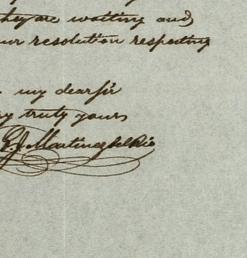 they are waiting and
our resolution respecting
my dear sir
truly yours